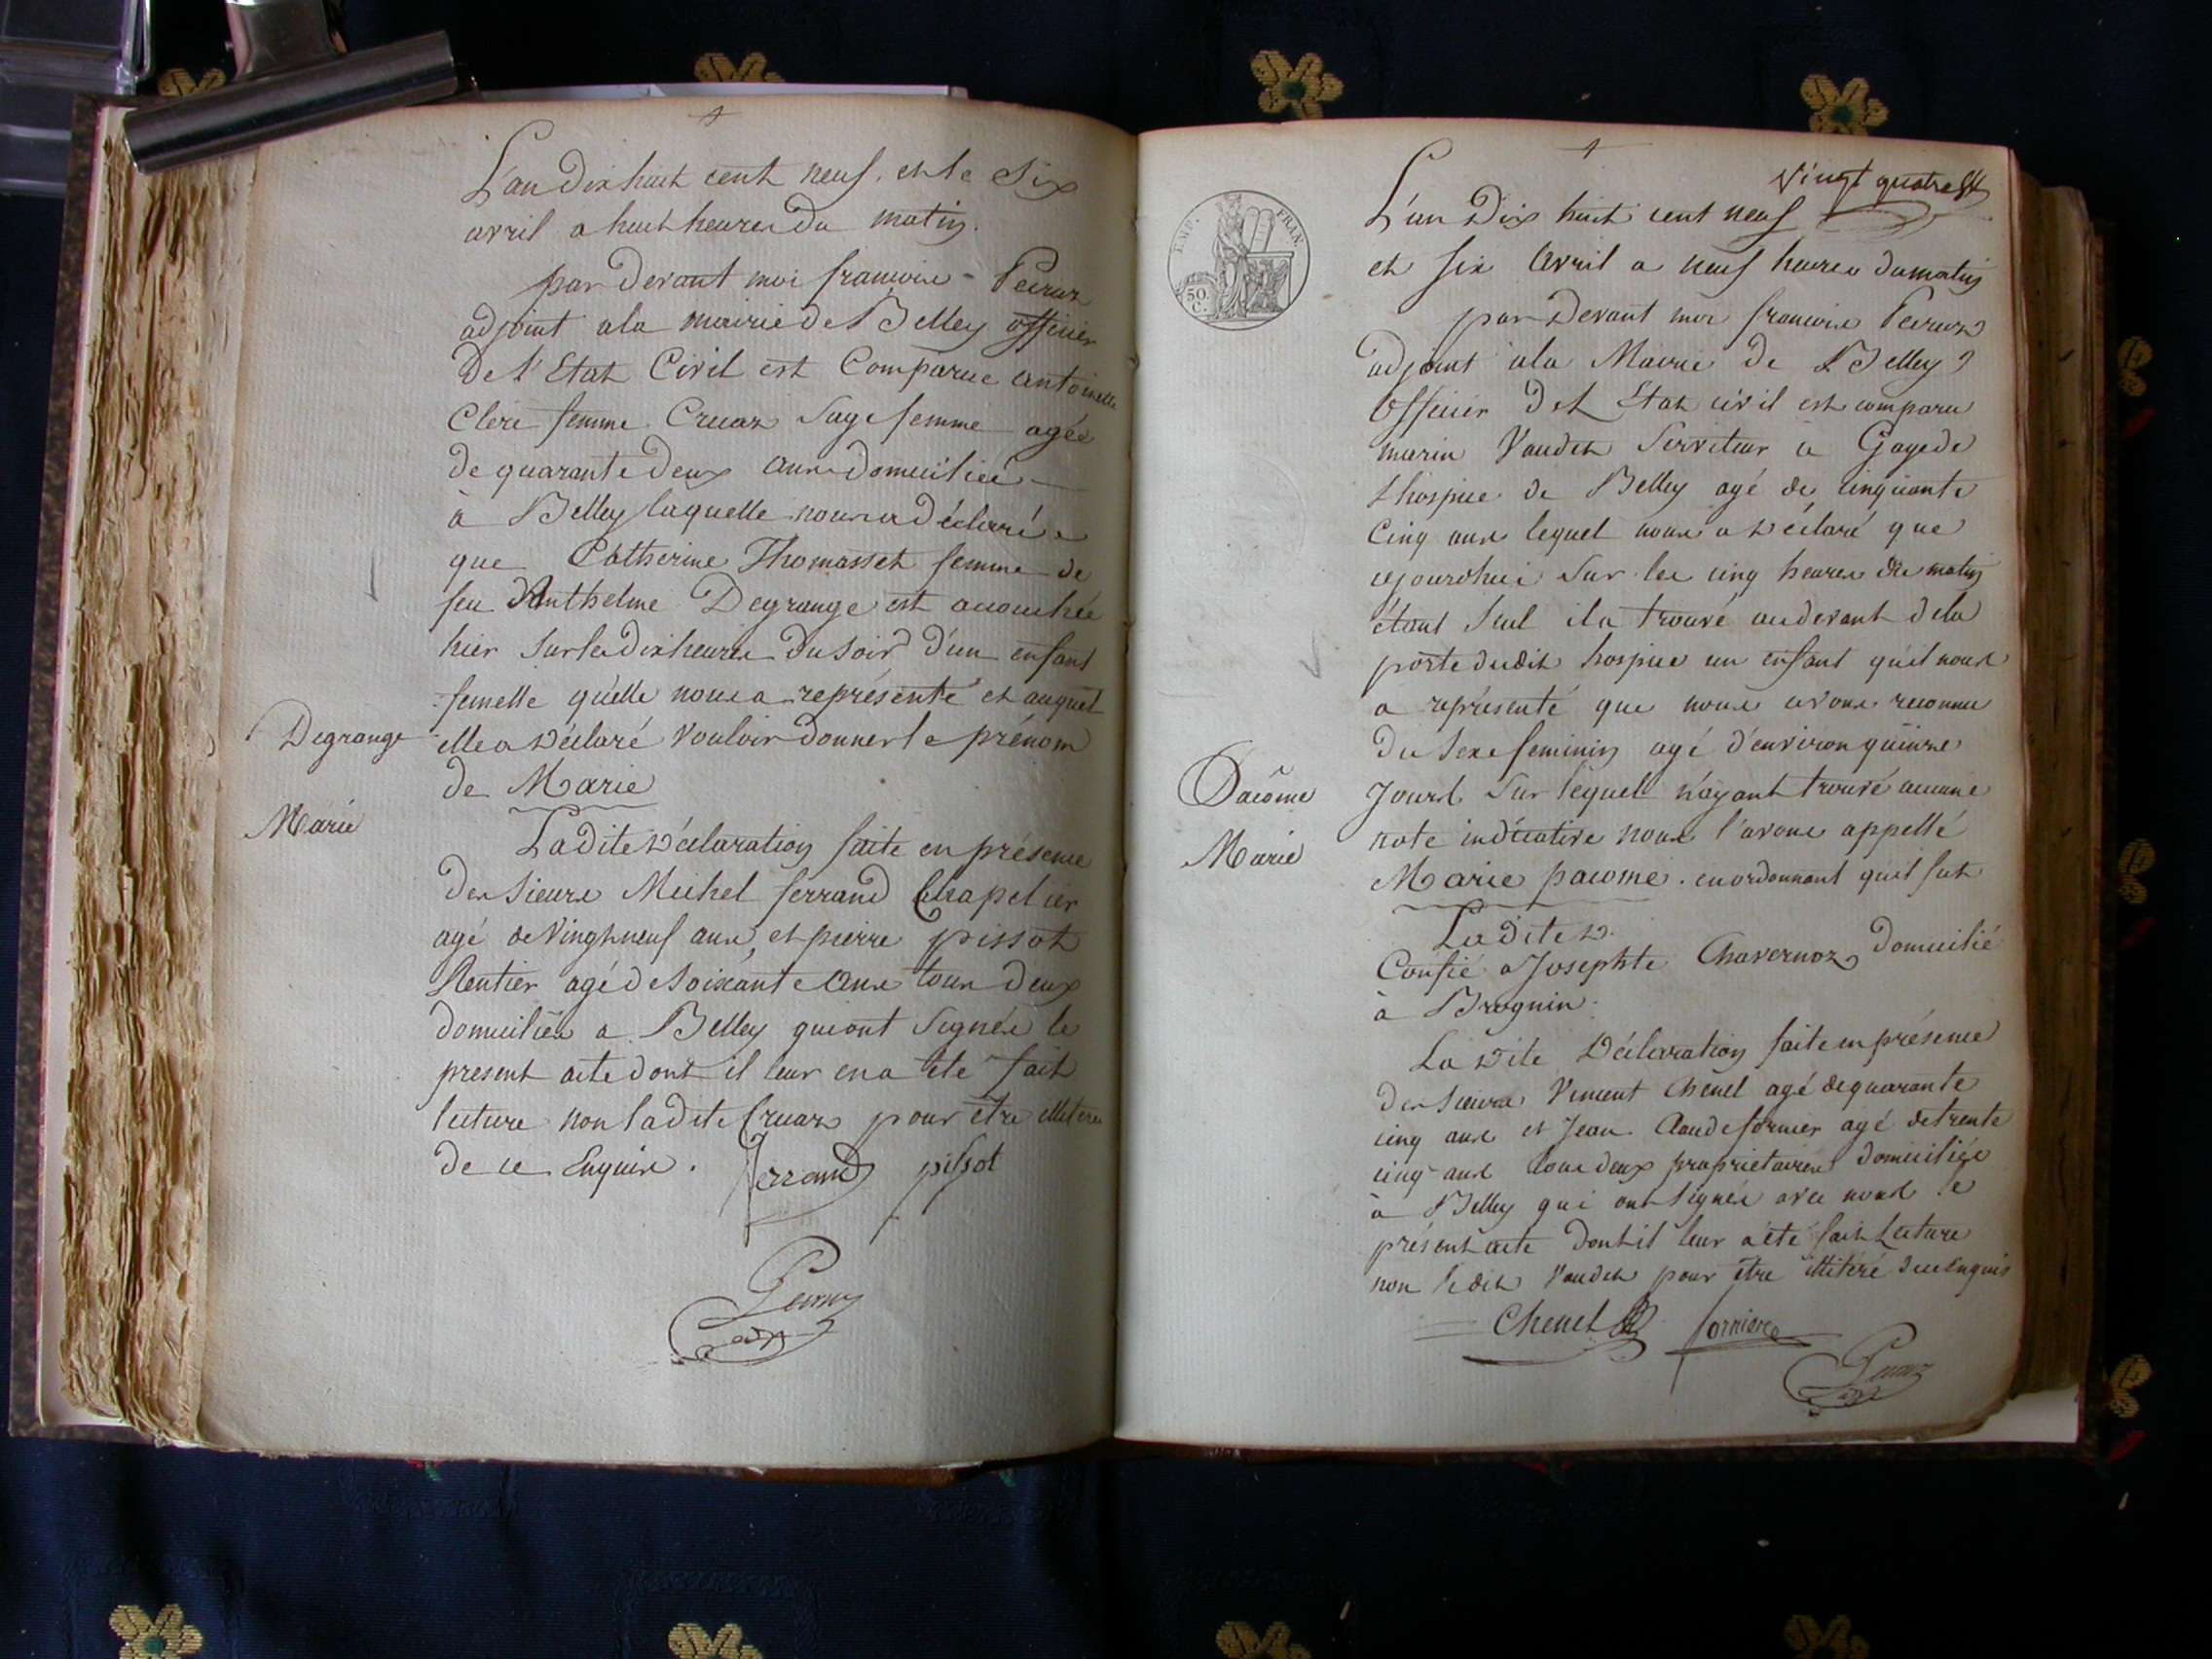 L'an Dix huit cent neuf. et le Six
avril a huit heures du matin.
par devant moi francois Peiraz
adjoint a la mairie de Belley officier
De l'Etat Civil est Comparue antoinette
Clere femme Cruaz Sage femme agée
de quarante deux ans domiciliée
à Belley laquelle nous a déclaré
que Catherine Thomasset femme de
feu Anthelme Degrange est accouchée
hier sur les dix heures du soir d'un enfant
femelle qu'elle nous a représenté et auquel
Degrange
elle a déclaré vouloir donner le prénom
de Marie
Marie
Ladite déclaration faite en présence
des sieurs Michel ferrand Chapelier
agé de vingt neuf ans, et pierre pissot
Rentier agé de soixante ans tous deux
domiciliés a Belley qui ont signés le
present acte dont il leur en a été fait
lecture non ladite Cruaz pour être illitérée
de ce Enquise.
ferrand pissot
Peiraz
adj
vingt quatre
EMP. FRAN.
50. C.
L'an Dix huit cent neuf
et six avril a neuf heures du matin
par devant moi francois Peiraz
adjoint a la Mairie de Belley
officier de l'Etat civil est comparu
marin Vaudet Serviteur à Gage de
l'hospice de Belley agé de cinquante
Cinq ans lequel nous a déclaré que
cejourdhui sur les cinq heures du matin
étant seul il a trouvé au devant de la
porte dudit hospice un enfant qu'il nous
a représenté que nous avons reconnu
du sexe feminin agé d'environ quinze
Pacôme
jours sur lequel n'ayant trouvé aucune
note indicative nous l'avons appellé
Marie
Marie pacome. en ordonnant qu'il fut
La dite D.
Confié a Josephte Chavernoz domicilié
à Brognin.
La dite Déclaration faite en présence
des sieurs Vincent Chenel agé de quarante
cinq ans et Jean Claude fornier agé de trente
cinq ans tous deux proprietaires domiciliés
à Belley qui ont signés avec nous le
présent acte dont il leur a été fait lecture
non ledit Vaudet pour être illitéré de ce enquis
Chenel fornier
Peiraz
adj